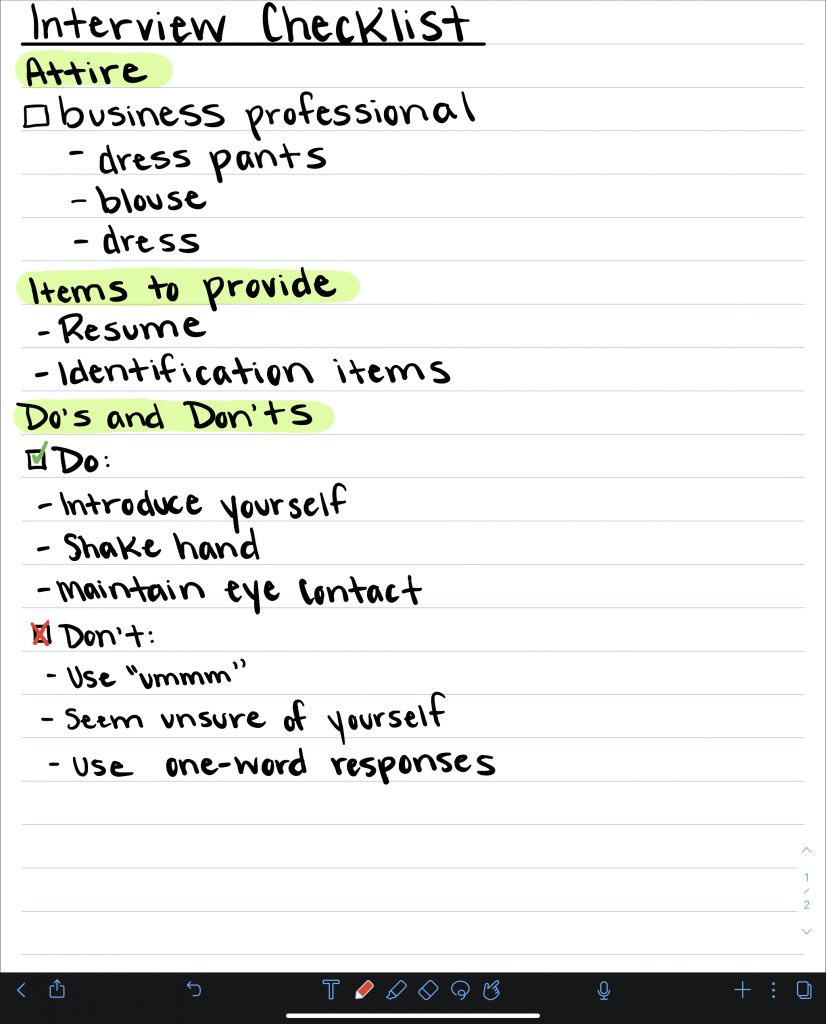 Interview Checklist
Attire
business professional
- dress pants
- blouse
- dress
Items to provide
- Resume
- Identification items
Do's and Don'ts
Do:
- Introduce yourself
- Shake hand
- maintain eye contact
Don't:
- Use "ummm"
- Seem unsure of yourself
- Use one-word responses
1
/
2
T